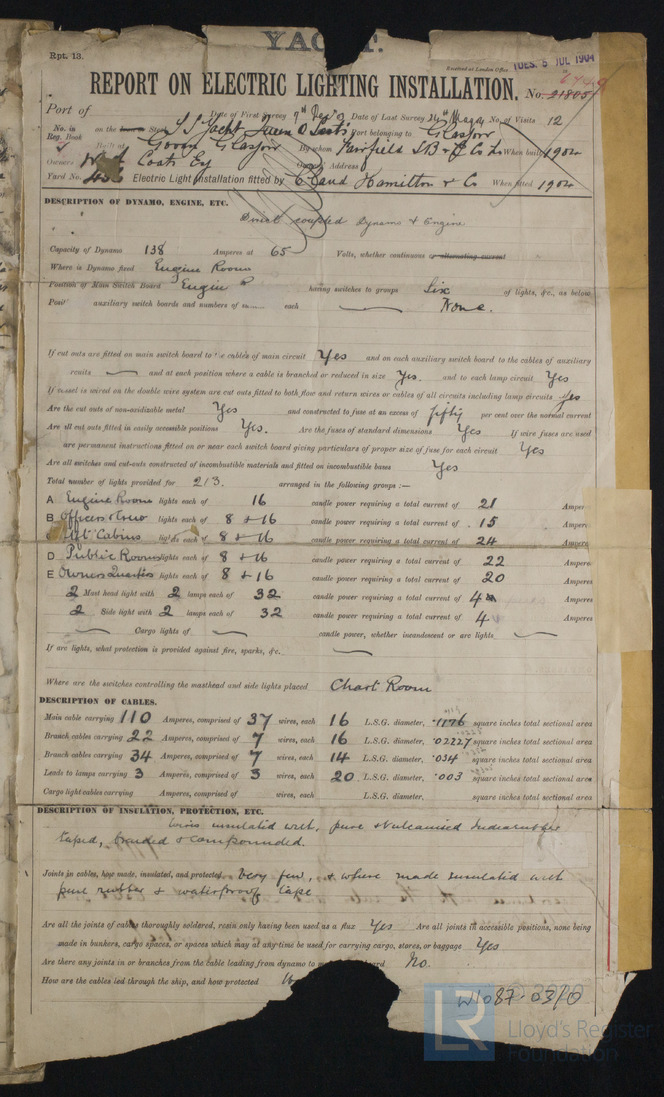 YACHT.
Rpt. 13.
Received at London Office TUES. 5 JUL 1904
REPORT ON ELECTRIC LIGHTING INSTALLATION. No. 21805
Port of Date of First Survey 7th Decr 03 Date of Last Survey 24th May 04 No. of Visits 12
No. in Reg. Book on the Iron or Steel S S Yacht Port belonging to Glasgow
Built at Govan Glasgow By whom Fairfield S.B. & E Co Ld When built 1904
Owners Coats Esq Owners Address
Yard No. Electric Light Installation fitted by Claud Hamilton & Co When fitted 1904
DESCRIPTION OF DYNAMO, ENGINE, ETC.
Direct coupled Dynamo & Engine
Capacity of Dynamo 138 Amperes at 65 Volts, whether continuous or alternating current
Where is Dynamo fixed Engine Room
Position of Main Switch Board Engine R having switches to groups Six of lights, &c., as below
Posit auxiliary switch boards and numbers of each — None.
If cut outs are fitted on main switch board to the cables of main circuit Yes and on each auxiliary switch board to the cables of auxiliary
rcuits — and at each position where a cable is branched or reduced in size Yes. and to each lamp circuit Yes
If vessel is wired on the double wire system are cut outs fitted to both flow and return wires or cables of all circuits including lamp circuits Yes
Are the cut outs of non-oxidizable metal Yes and constructed to fuse at an excess of fifty per cent over the normal current
Are all cut outs fitted in easily accessible positions Yes. Are the fuses of standard dimensions Yes If wire fuses are used
are permanent instructions fitted on or near each switch board giving particulars of proper size of fuse for each circuit Yes
Are all switches and cut-outs constructed of incombustible materials and fitted on incombustible bases Yes
Total number of lights provided for 213. arranged in the following groups :—
A Engine Room lights each of 16 candle power requiring a total current of 21 Amper
B Officers & Crew lights each of 8 & 16 candle power requiring a total current of 15 Amper
Cabins lights each of 8 & 16 candle power requiring a total current of 24 Ampere
D Public Rooms lights each of 8 & 16 candle power requiring a total current of 22 Ampere
E Owners Quarters lights each of 8 & 16 candle power requiring a total current of 20 Amperes
2 Mast head light with 2 lamps each of 32 candle power requiring a total current of 4 Amperes
2 Side light with 2 lamps each of 32 candle power requiring a total current of 4 Amperes
— Cargo lights of — candle power, whether incandescent or arc lights —
If arc lights, what protection is provided against fire, sparks, &c. —
Where are the switches controlling the masthead and side lights placed Chart Room
DESCRIPTION OF CABLES.
Main cable carrying 110 Amperes, comprised of 37 wires, each 16 L.S.G. diameter, .1176 square inches total sectional area
Branch cables carrying 22 Amperes, comprised of 7 wires, each 16 L.S.G. diameter, .02227 square inches total sectional area
Branch cables carrying 34 Amperes, comprised of 7 wires, each 14 L.S.G. diameter, .034 square inches total sectional area
Leads to lamps carrying 3 Amperes, comprised of 3 wires, each 20 L.S.G. diameter, .003 square inches total sectional area
Cargo light cables carrying Amperes, comprised of wires, each L.S.G. diameter, square inches total sectional area
DESCRIPTION OF INSULATION, PROTECTION, ETC.
Wires insulated with, pure & vulcanised Indiarubber
taped, braided & compounded.
Joints in cables, how made, insulated, and protected Very few, & where made insulated with
pure rubber & waterproof tape
Are all the joints of cables thoroughly soldered, resin only having been used as a flux Yes Are all joints in accessible positions, none being
made in bunkers, cargo spaces, or spaces which may at any time be used for carrying cargo, stores, or baggage Yes
Are there any joints in or branches from the cable leading from dynamo to m board No.
How are the cables led through the ship, and how protected
W1087-0310
© 2020
LR Lloyd's Register
Foundation